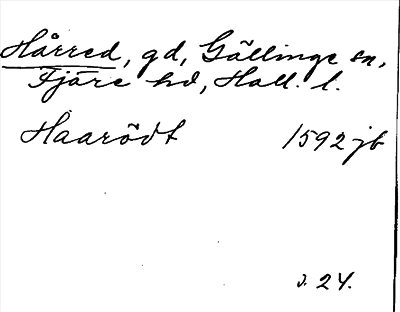 Hårred, gd, Gällinge sn,
Fjäre hd, Hall. l.
Haarödt 1592 jb
s. 24.